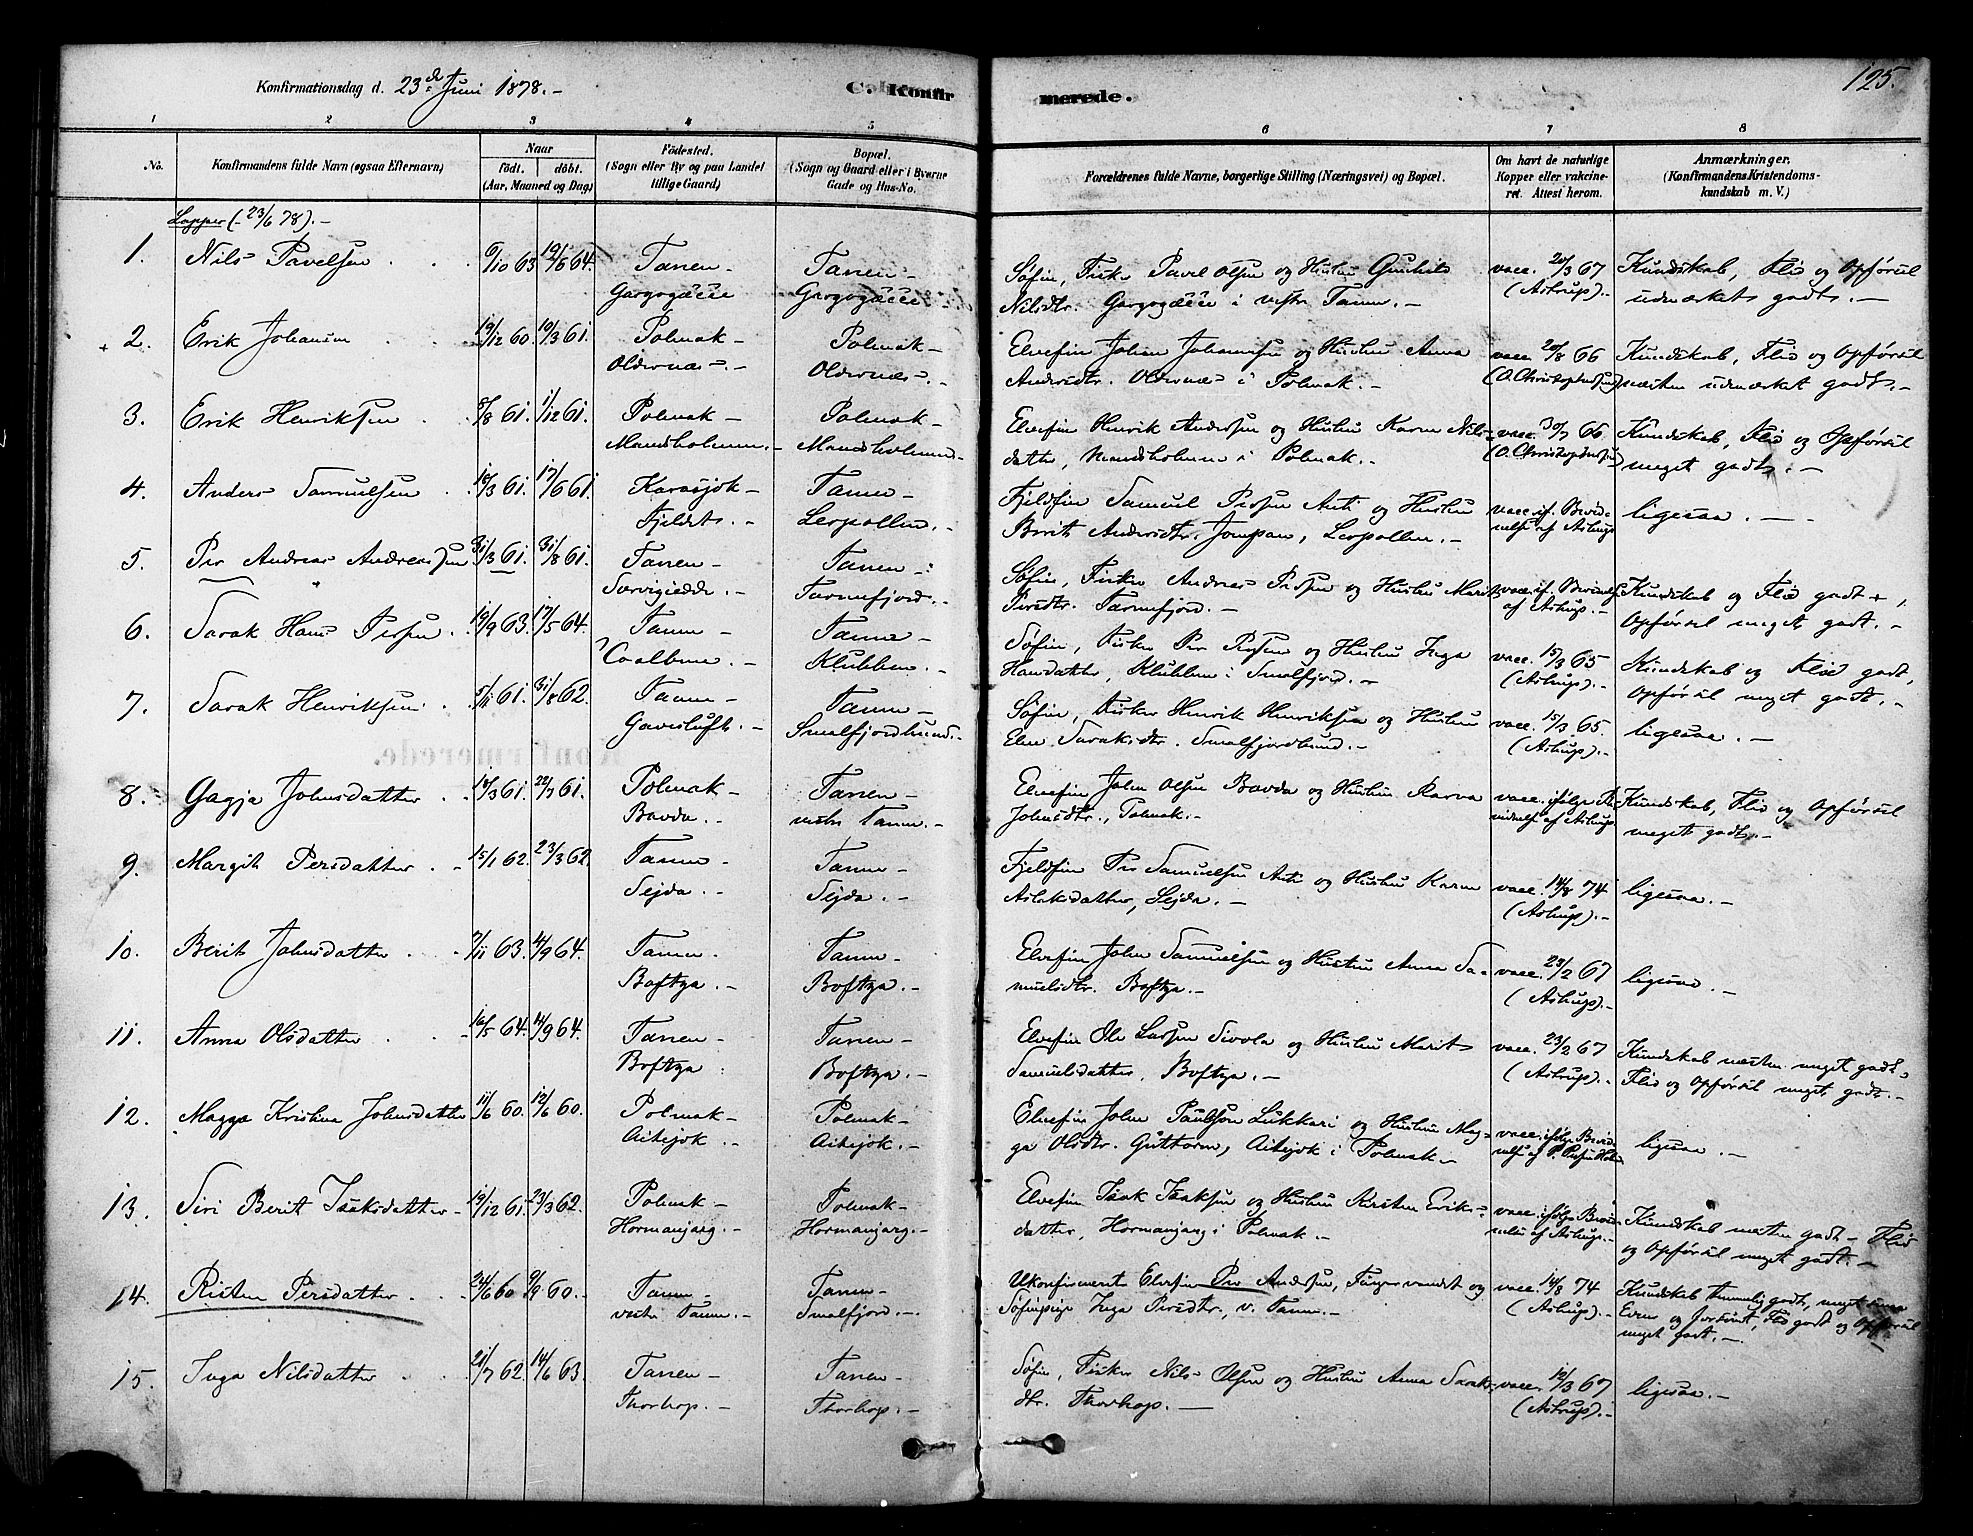 Konfirmationsdag d. 23de Juni 1878. –
C. Konfir
merede.
125.
1 2 3 4 5 6 7 8
No.
Konfirmandens fulde Navn (egsaa Efternavn)
Naar
födt. döbt.
(Aar, Maaned og Dag)
Födested.
(Sogn eller By og paa Landet
tillige Gaard)
Bopæl.
(Sogn og Gaard eller i Byerne
Gade og Hus-No.
Forældrenes fulde Navne, borgerlige Stilling (Næringsvei) og Bopæl.
Om havt de naturlige
Kopper eller vakcine-
ret. Attest herom.
Anmærkninger.
(Konfirmandens Kristendoms-
kundskab m. V.)
Lapper (– 23/6 78). –
1. Nils Pavelsen 6/10 63 19/6 64. Tanen – Tanen – Søfin, Fisker Pavel Olsen og Hustru Gunhild vacc. 20/3 67 Kundskab, Flid og Opførsel
Gargogæcce Gargogæcce Nilsdtr. Gargogæcce i vestre Tanen. – (Astrup). – udmærket godt. –
2. Erik Johansen 19/12 60 10/3 61. Polmak – Polmak – Elvefin Johan Johannesen og Hustru Anna vacc. 20/8 66 Kundskab, Flid og Opførsel
Oldernæs. – Oldernæs. – Andersdtr. Oldernæs i Polmak. – (O. Christophersen) næsten udmærket godt. –
3. Erik Henriksen 8/8 61. 1/12 61. Polmak – Polmak – Elvefin Henrik Andersen og Hustru Karen Nils- vacc. 30/7 66 Kundskab, Flid og Opførsel
Mandsholmen. – Mandsholmen. – datter, Mandsholmen i Polmak. – (O. Christophersen) meget godt. –
4. Anders Samuelsen 10/3 61. 17/6 61. Karasjok – Tanen – Fjeldfin Samuel Persen Anti og Hustru vacc. if. Bevid- ligesaa. –
Fjeldet. – Leopollen. – Berit Andersdtr. Jompan, Leopollen. – nelse af Astrup
5. Per Andreas Andreassen 31/3 61. 31/8 61. Tanen – Tanen – Søfin, Fisker Andreas Persen og Hustru Marit vacc. if. Bevidnelse Kundskab og Flid godt +,
Tarvigiedde. – Tannefjord. – Persdtr. Tannefjord. – af Astrup. – Opførsel meget godt. –
6. Sarak Hans Persen 19/9 63. 17/5 64. Tanen – Tanen – Søfin, Fisker Per Persen og Hustru Inga vacc. 15/3 65 Kundskab og Flid godt,
Coalbme. – Klubben. – Hansdatter, Klubben i Smalfjord. – (Astrup). – Opførsel meget godt. –
7. Sarak Henriksen 5/11 61. 31/8 62. Tanen – Tanen – Søfin, Fisker Henrik Henriksen og Hustru vacc. 15/3 65. ligesaa. –
Gavesluft. – Smalfjordbund. – Elen Saraksdtr. Smalfjordbund. – (Astrup). –
8. Gagja Johnsdatter 10/3 61. 22/7 61. Polmak – Tanen – Elvefin John Olsen Bavda og Hustru Karen vacc. ifølge Be- Kundskab, Flid og Opførsel
Bavda. – vestre Tanen. – Johnsdtr., Polmak. – vidnelse af Astrup meget godt. –
9. Margit Persdatter 15/1 62. 23/3 62. Tanen – Tanen – Fjeldfin Per Samuelsen Anti og Hustru Karen vacc. 14/8 74 ligesaa. –
Sejda. – Sejda. – Aslaksdatter, Sejda. – (Astrup). –
10. Berit Johnsdatter 7/11 63. 4/9 64. Tanen – Tanen – Elvefin John Samuelsen og Hustru Anna Sa- vacc. 23/2 67 ligesaa. –
Boftza. – Boftza. – muelsdtr. Boftza. – (Astrup). –
11. Anna Olsdatter 16/5 64. 4/9 64. Tanen – Tanen – Elvefin Ole Larsen Sivola og Hustru Marit vacc. 23/2 67 Kundskab næsten meget godt.
Boftza. Boftza. – Samuelsdatter, Boftza. – (Astrup). – Flid og Opførsel meget godt. –
12. Magga Kristina Johnsdatter 11/6 60. 12/6 60. Polmak – Polmak – Elvefin John Paulsen Lukkari og Hustru Mag- vacc. ifølge Bevid- ligesaa. –
Aitejok. – Aitejok. – ga Olsdtr. Guttorm, Aitejok i Polmak. –
13. Siri Berit Isaksdatter 19/12 61. 23/3 62. Polmak – Polmak – Elvefin Isak Isaksen og Hustru Kirsten Eriks- vacc. ifølge Bevid- Kundskab næsten godt – Flid
Hormanjarg. – Hormanjarg. – datter, Hormanjarg i Polmak. – nelse af Astrup. – og Opførsel meget godt. –
14. Risten Persdatter 24/6 60 9/9 60. Tanen – Tanen – Ukonfirmeret Elvefin Per Andersen, Fingervandet og vacc. 14/8 74 Kundskab temmelig godt, meget sma
vestre Tanen. – Smalfjord. – Søfinpige Inga Persdtr., v. Tanen. – (Astrup). – Evner og forsømt, Flid godt og Opførsel
meget godt. –
15. Inga Nilsdatter 21/7 62. 14/6 63. Tanen – Tanen – Søfin, Fisker Nils Olsen og Hustru Anna Saraks- vacc. 12/3 67 ligesaa. –
Thorhop. – Thorhop. – dtr. Thorhop. – (Astrup). –